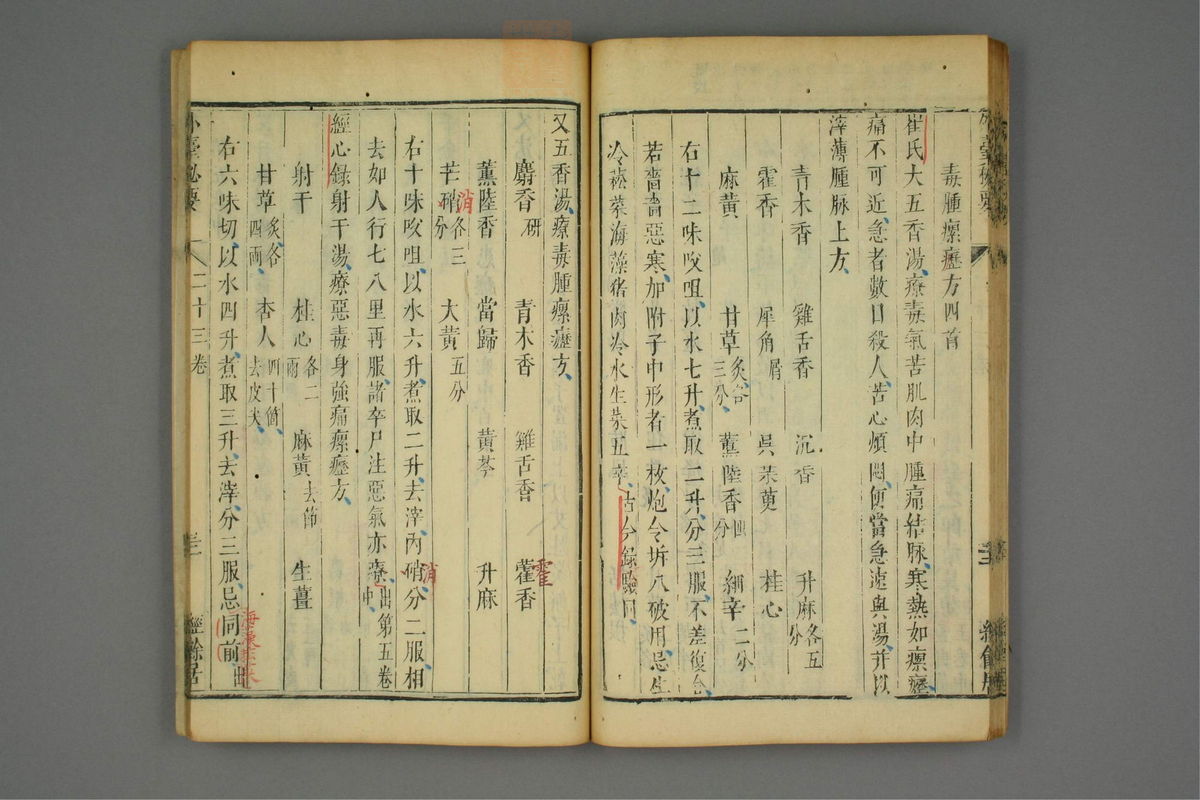 毒腫瘰癧方四首
崔氏大五香湯療毒氣苦肌肉中腫痛結脉寒熱如瘰癧
痛不可近急者數日殺人苦心煩悶便當急速與湯并以
滓薄腫脉上方
青木香 雞舌香 沉香 升麻各五分
霍香 犀角屑 吳茱萸 桂心
麻黃 甘草炙各三分 薰陸香四分 細辛二分
右十二味㕮咀以水七升煮取二升分三服不差復合
若嗇嗇惡寒加附子中形者一枚炮令坼八破用忌生
冷菘菜海藻猪肉冷水生菜五辛古今錄驗同
又五香湯療毒腫瘰癧方
麝香研 青木香 雞舌香 藿香
霍
薰陸香 當歸 黃芩 升麻
芒硝各三分 大黃五分
消
右十味㕮咀以水六升煮取二升去滓內硝分二服相
消
去如人行七八里再服諸卒尸注惡氣亦療出第五卷中
經心錄射干湯療惡毒身強痛瘰癧方
射干 桂心各二兩 麻黃去節 生薑
甘草炙各四兩 杏人四十箇去皮尖
右六味切以水四升煮取三升去滓分三服忌同前出
外臺秘要 二十三卷 三 經餘居